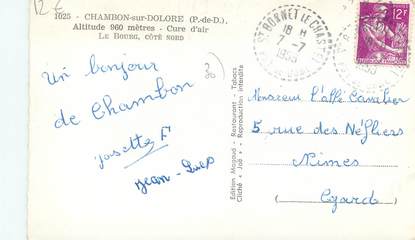 12 F
1025 - CHAMBON-sur-DOLORE (P.-de-D.).
Altitude 960 mètres - Cure d'air
LE BOURG, CÔTÉ NORD
Un bonjour
de Chambon
Josette F
Jean-
30
Edition Magaud - Restaurant - Tabacs
Cliché « Job » - Reproduction interdite
ST BONNET LE CHASTEL
18 H
7 -7
1955
12F
Monsieur l'abbé Cavalier
5 rue des Néfliers
Nîmes
Gard